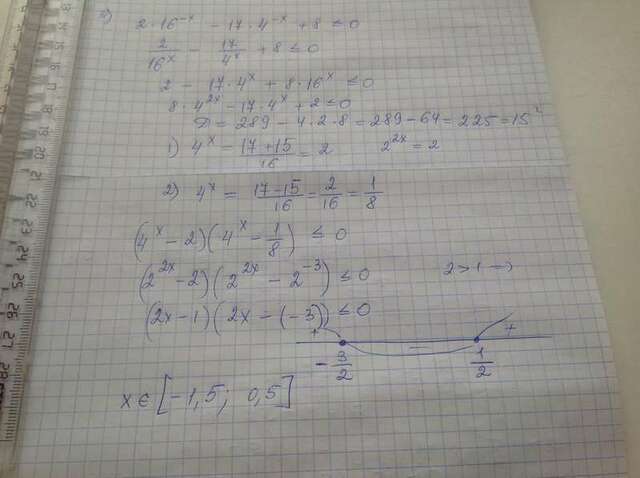 2 · 16^{-x} - 17 · 4^{-x} + 8 ≤ 0
2/16^x - 17/4^x + 8 ≤ 0
2 - 17 · 4^x + 8 · 16^x ≤ 0
8 · 4^{2x} - 17 · 4^x + 2 ≤ 0
D = 289 - 4 · 2 · 8 = 289 - 64 = 225 = 15^2
1) 4^x = (17 + 15)/16 = 2 2^{2x} = 2
2) 4^x = (17 - 15)/16 = 2/16 = 1/8
(4^x - 2)(4^x - 1/8) ≤ 0
(2^{2x} - 2)(2^{2x} - 2^{-3}) ≤ 0 2 > 1 ⇒
(2x - 1)(2x - (-3)) ≤ 0
+ - +
-3/2 1/2
x ∈ [-1,5; 0,5]